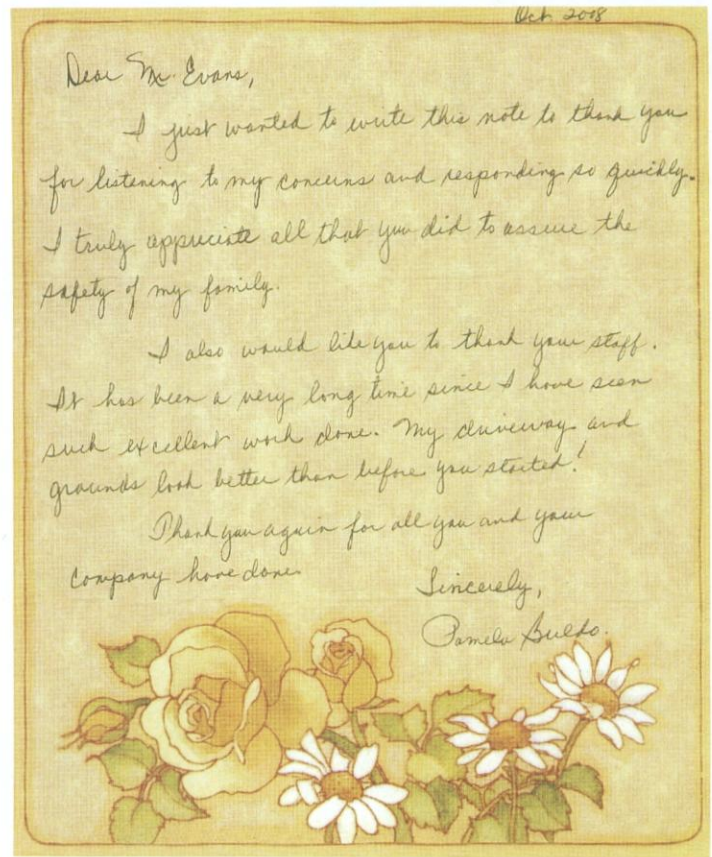 Oct 2008
Dear Mr. Evans,
I just wanted to write this note to thank you
for listening to my concerns and responding so quickly.
I truly appreciate all that you did to assure the
safety of my family.
I also would like you to thank your staff.
It has been a very long time since I have seen
such excellent work done. My driveway and
grounds look better than before you started!
Thank you again for all you and your
company have done.
Sincerely,
Pamela